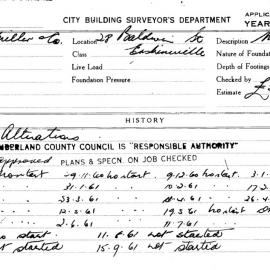 CITY BUILDING SURVEYOR'S DEPARTMENT
APPLIC
YEAR
Miller & Co. Location 28 Baldwin St Description
Class Erskineville Nature of Foundat
Live Load Depth of Footings
Foundation Pressure Checked by
Estimate £
HISTORY
Alterations
MBERLAND COUNTY COUNCIL IS "RESPONSIBLE AUTHORITY"
approved PLANS & SPECN. ON JOB CHECKED
no start -9.11.60 no start 9.12.60 no start 3.1.
31.1.61 10.2.61 17.2
23.3.61 4.61 26.4
12.5.61 19.5.61 no start
2.6.61 11.7.61
no start 11.8.61 not started
not started 15.9.61 not started